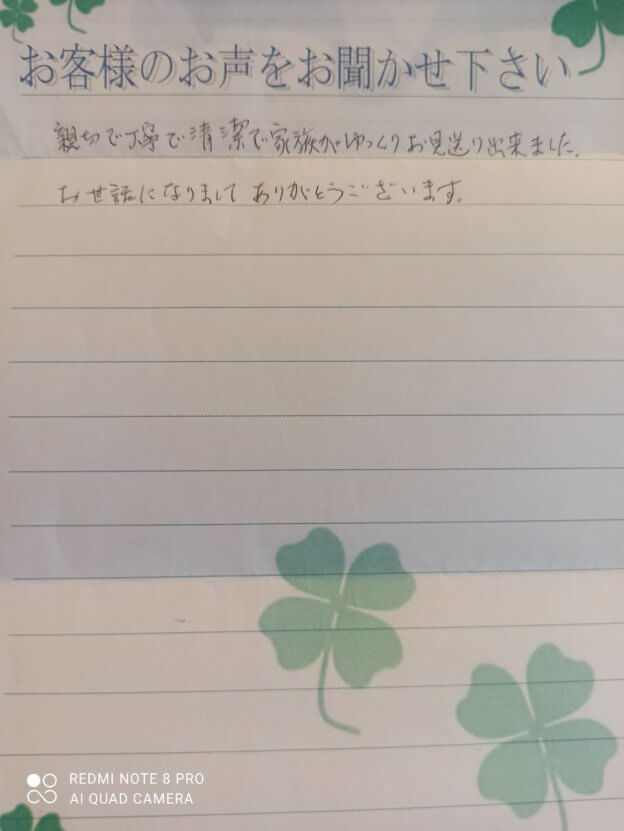 お客様のお声をお聞かせ下さい
親切で丁寧で清潔で家族がゆっくりお見送り出来ました。
お世話になりまして ありがとうございます。
REDMI NOTE 8 PRO
AI QUAD CAMERA